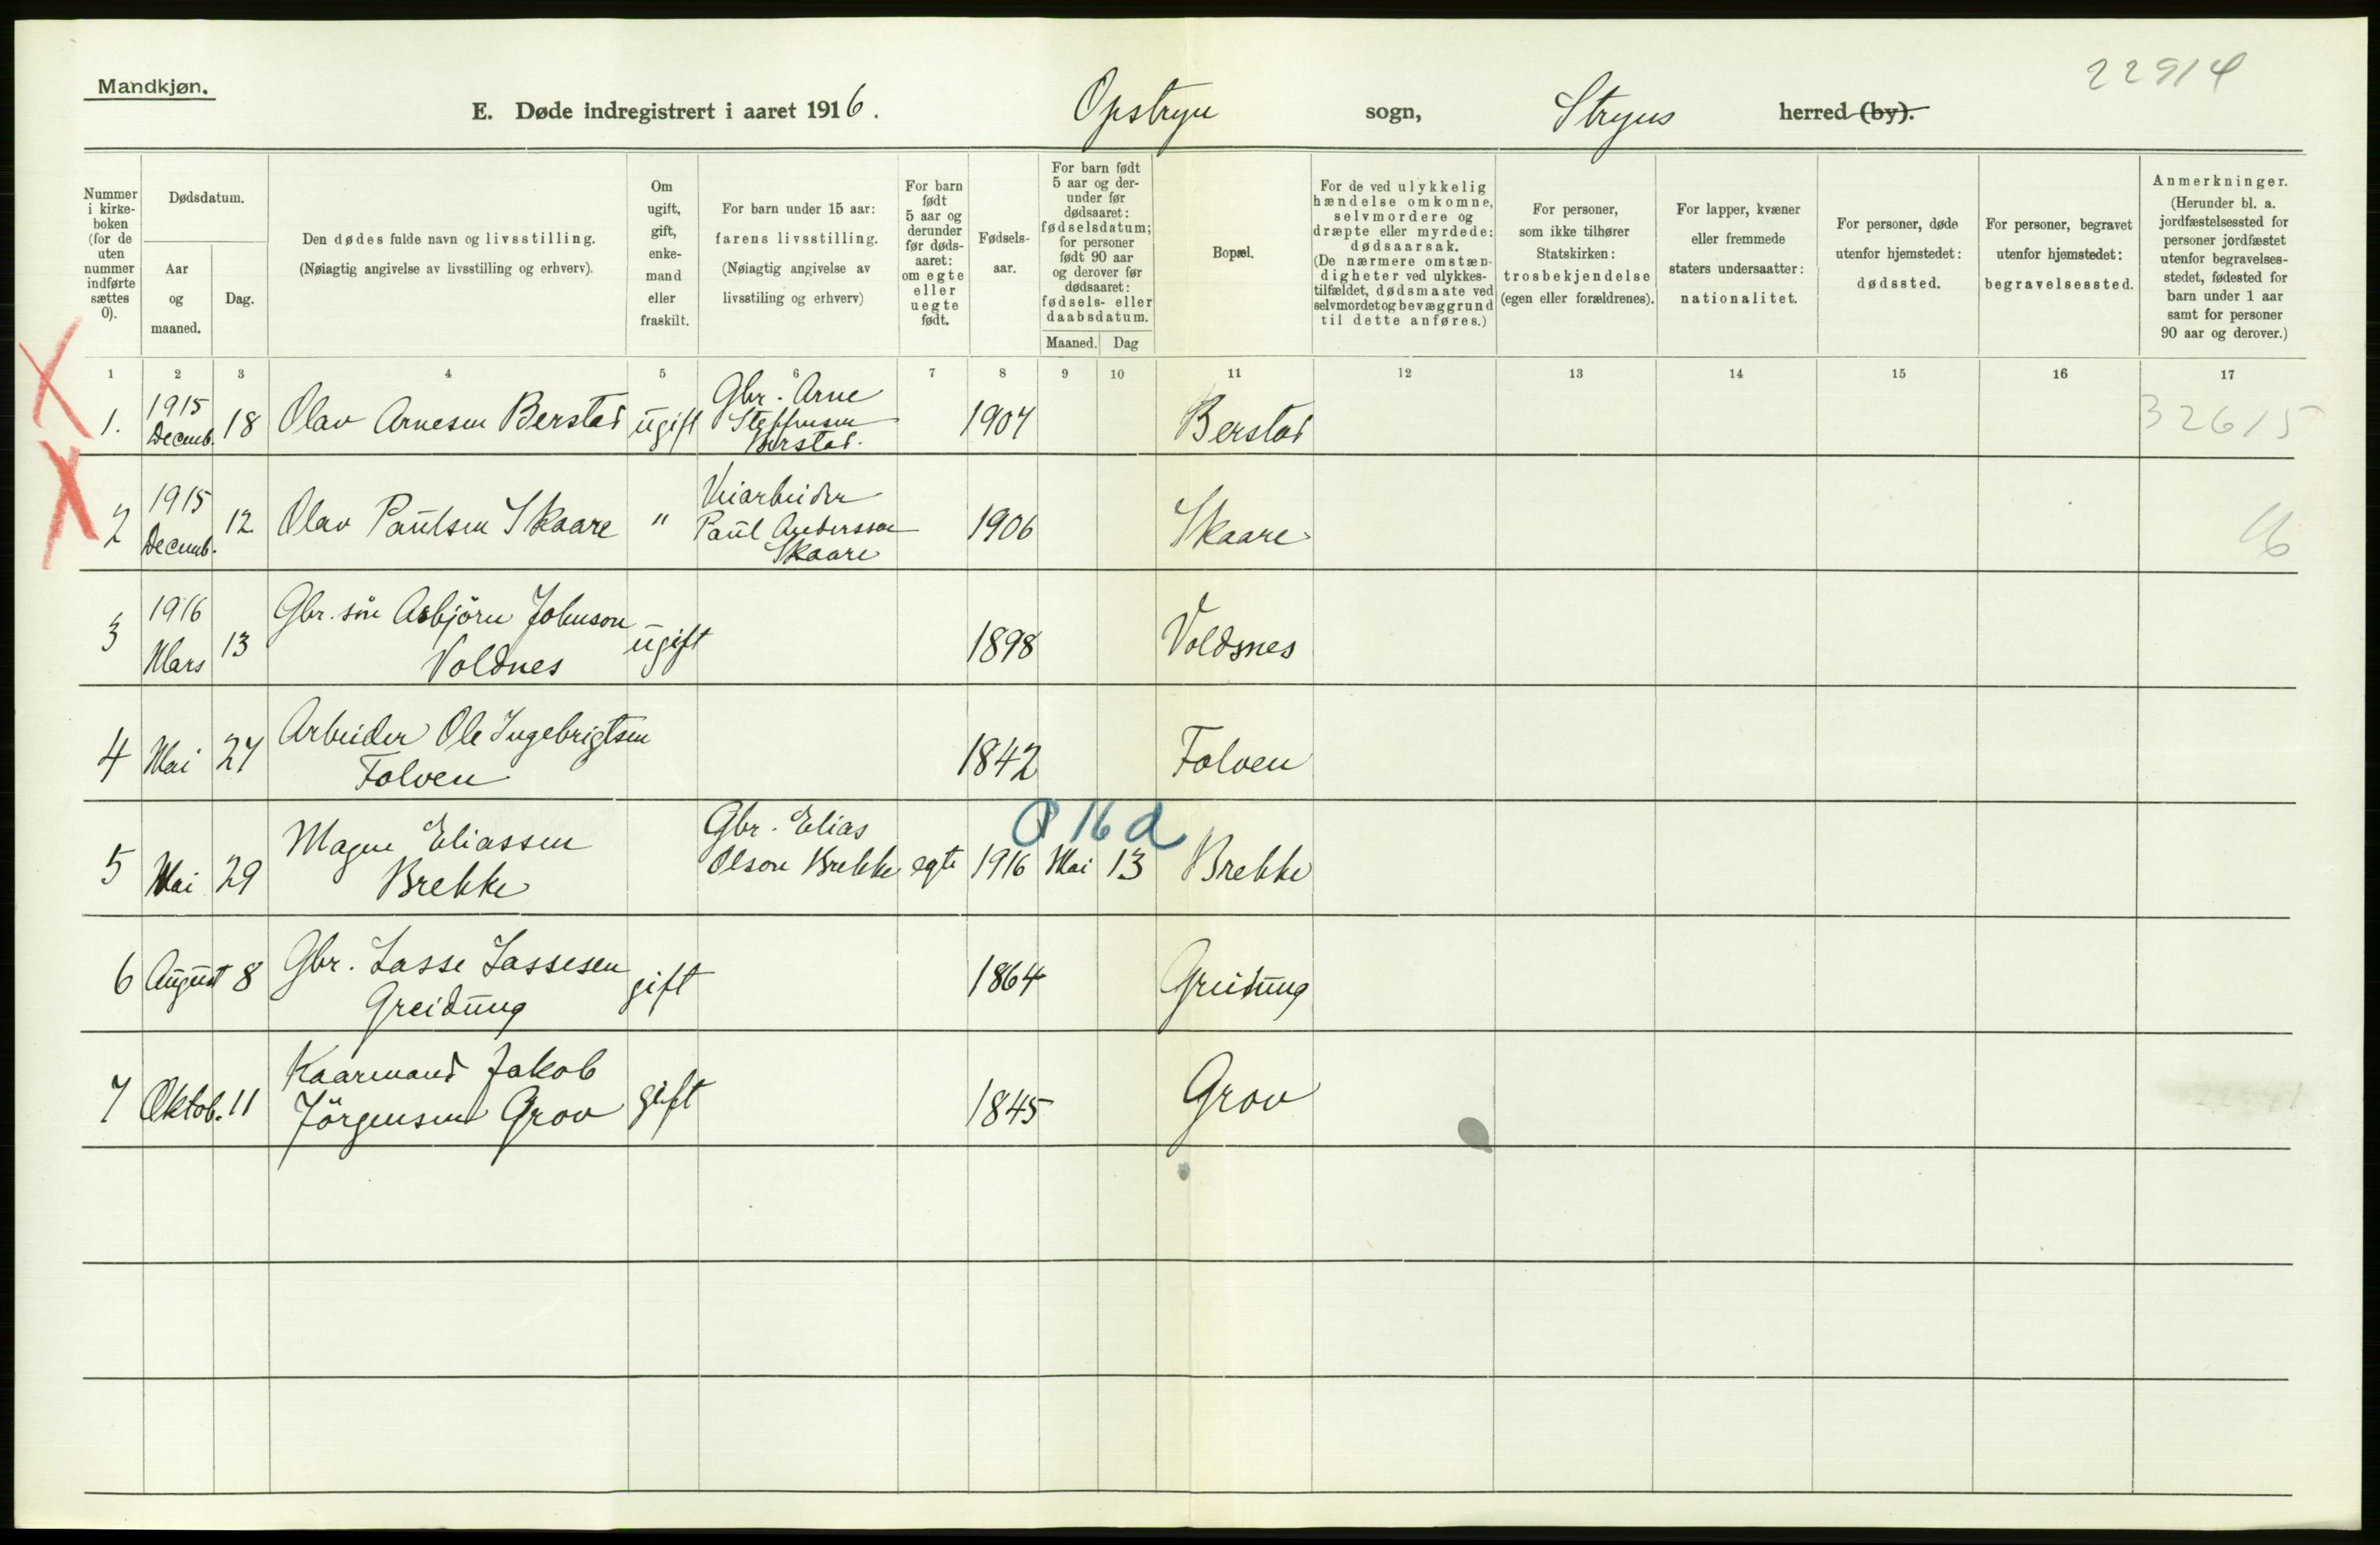 Mandkjøn.
22914
E. Døde indregistrert i aaret 1916. Opstryn sogn, Stryns herred (by).
Nummer i kirkeboken (for de uten nummer indførte sættes 0).
Dødsdatum.
Aar og maaned.
Dag.
Den dødes fulde navn og livsstilling.
(Nøiagtig angivelse av livsstilling og erhverv).
Om ugift, gift, enkemand eller fraskilt.
For barn under 15 aar: farens livsstilling.
(Nøiagtig angivelse av livsstiling og erhverv)
For barn født 5 aar og derunder før dødsaaret: om egte eller uegte født.
Fødselsaar.
For barn født 5 aar og derunder før dødsaaret: fødselsdatum; for personer født 90 aar og derover før dødsaaret: fødsels- eller daabsdatum.
Maaned. Dag
Bopæl.
For de ved ulykkelig hændelse omkomne, selvmordere og dræpte eller myrdede: dødsaarsak.
(De nærmere omstændigheter ved ulykkestilfældet, dødsmaate ved selvmordet og bevæggrund til dette anføres.)
For personer, som ikke tilhører Statskirken: trosbekjendelse (egen eller forældrenes).
For lapper, kvæner eller fremmede staters undersaatter: nationalitet.
For personer, døde utenfor hjemstedet: dødssted.
For personer, begravet utenfor hjemstedet: begravelsessted.
Anmerkninger.
(Herunder bl. a. jordfæstelsessted for personer jordfæstet utenfor begravelsesstedet, fødested for barn under 1 aar samt for personer 90 aar og derover.)
1 2 3 4 5 6 7 8 9 10 11 12 13 14 15 16 17
1. 1915 Decemb. 18 Olav Arnesen Berstad ugift Gbr. Arne Steffensen Berstad. 1907 Berstad 32615
2 1915 Decemb. 12 Olav Paulsen Skaare " Veiarbeider Paul Anderssen Skaare 1906 Skaare 16
3 1916 Mars 13 Gbr. søn Asbjörn Johnson Voldnes ugift 1898 Voldsnes
4 Mai 27 Arbeider Ole Ingebrigtsen Folven 1842 Folven
0 16 d
5 Mai 29 Magne Eliassen Brekke Gbr. Elias Olson Brekke egte 1916 Mai 13 Brekke
6 August 8 Gbr. Lasse Lassesen Greidung gift 1864 Greidung
7 Oktob. 11 Kaarmand Jakob Jörgensen Grov gift 1845 Grov